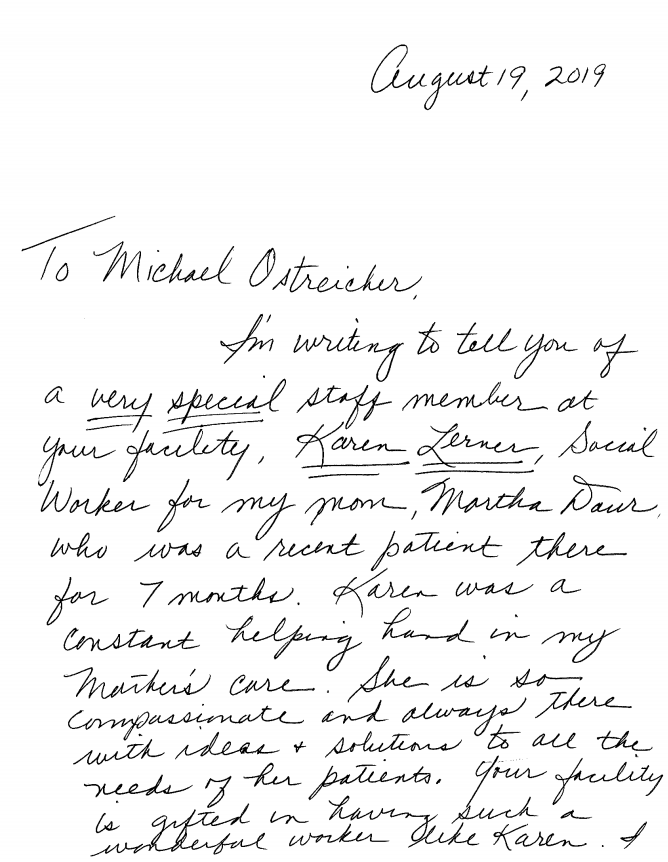 August 19, 2019
To Michael Ostreicher,
I'm writing to tell you of
a very special staff member at
your facility, Karen Lerner, Social
Worker for my mom, Martha Daur,
who was a recent patient there
for 7 months. Karen was a
constant helping hand in my
Mother's care. She is so
compassionate and always there
with ideas + solutions to all the
needs of her patients. Your facility
is gifted in having such a
wonderful worker like Karen. I